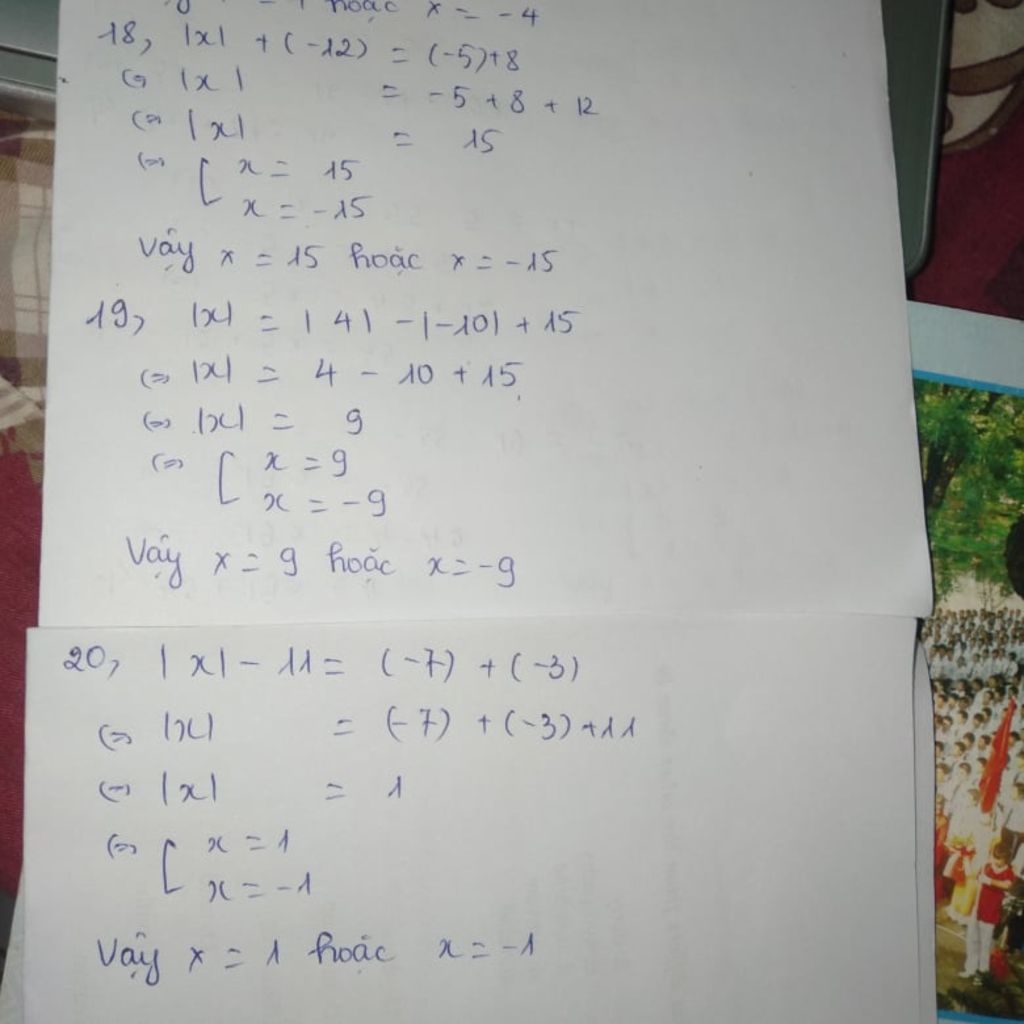 hoặc x = -4
18, |x| + (-12) = (-5)+8
⇔ |x| = -5 + 8 + 12
⇔ |x| = 15
⇔ [ x = 15
x = -15
Vậy x = 15 hoặc x = -15
19, |x| = |4| - |-10| + 15
⇔ |x| = 4 - 10 + 15
⇔ |x| = 9
⇔ [ x = 9
x = -9
Vậy x = 9 hoặc x = -9
20, |x| - 11 = (-7) + (-3)
⇔ |x| = (-7) + (-3) + 11
⇔ |x| = 1
⇔ [ x = 1
x = -1
Vậy x = 1 hoặc x = -1